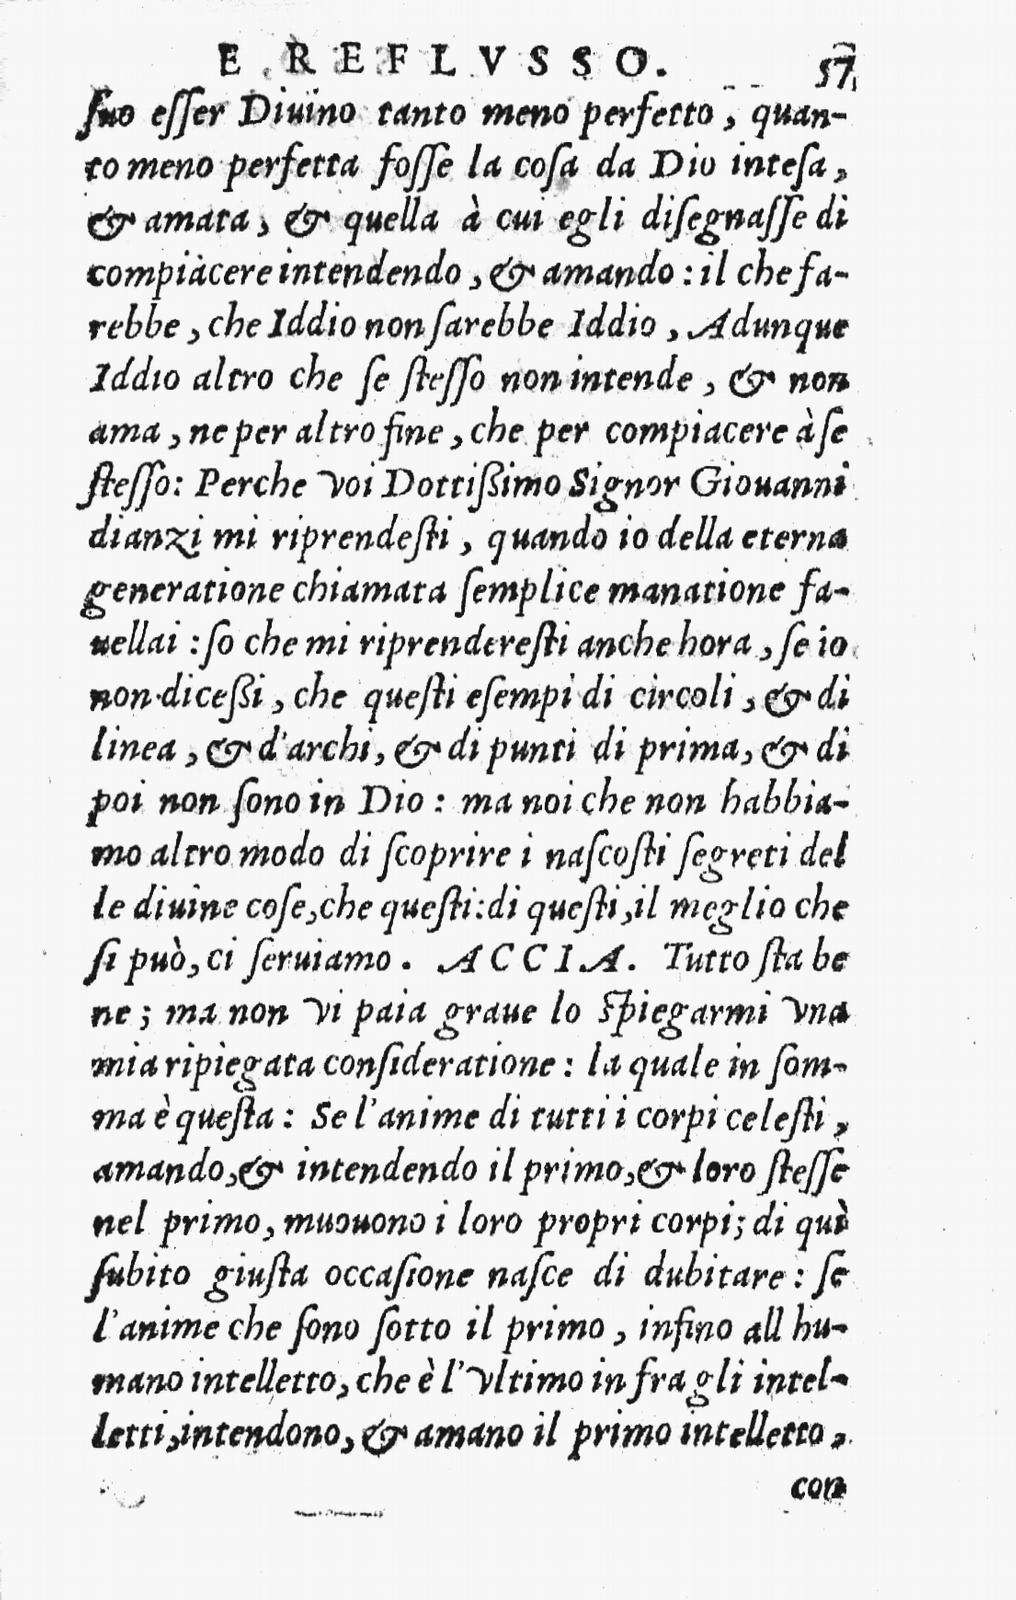 E REFLVSSO. 57
ſuo eſſer Diuino tanto meno perfetto, quan-
to meno perfetta foſſe la coſa da Dio inteſa,
& amata, & quella à cui egli diſegnaſſe di
compiacere intendendo, & amando: il che fa-
rebbe, che Iddio non ſarebbe Iddio, Adunque
Iddio altro che ſe ſteſſo non intende, & non
ama, ne per altro fine, che per compiacere à ſe
ſteſſo: Perche voi Dottißimo Signor Giouanni
dianzi mi riprendeſti, quando io della eterna
generatione chiamata ſemplice manatione fa-
uellai: ſo che mi riprendereſti anche hora, ſe io
non diceßi, che queſti eſempi di circoli, & di
linea, & d'archi, & di punti di prima, & di
poi non ſono in Dio: ma noi che non habbia-
mo altro modo di ſcoprire i naſcoſti ſegreti del
le diuine coſe, che queſti: di queſti, il meglio che
ſi può, ci ſeruiamo. ACCIA. Tutto ſta be
ne; ma non vi paia graue lo ſpiegarmi vna
mia ripiegata conſideratione: la quale in ſom-
ma è queſta: Se l'anime di tutti i corpi celeſti,
amando, & intendendo il primo, & loro ſteſſe
nel primo, muouono i loro propri corpi; di quì
ſubito giuſta occaſione naſce di dubitare: ſe
l'anime che ſono ſotto il primo, infino all hu-
mano intelletto, che è l'vltimo in fra gli intel-
letti, intendono, & amano il primo intelletto,
con